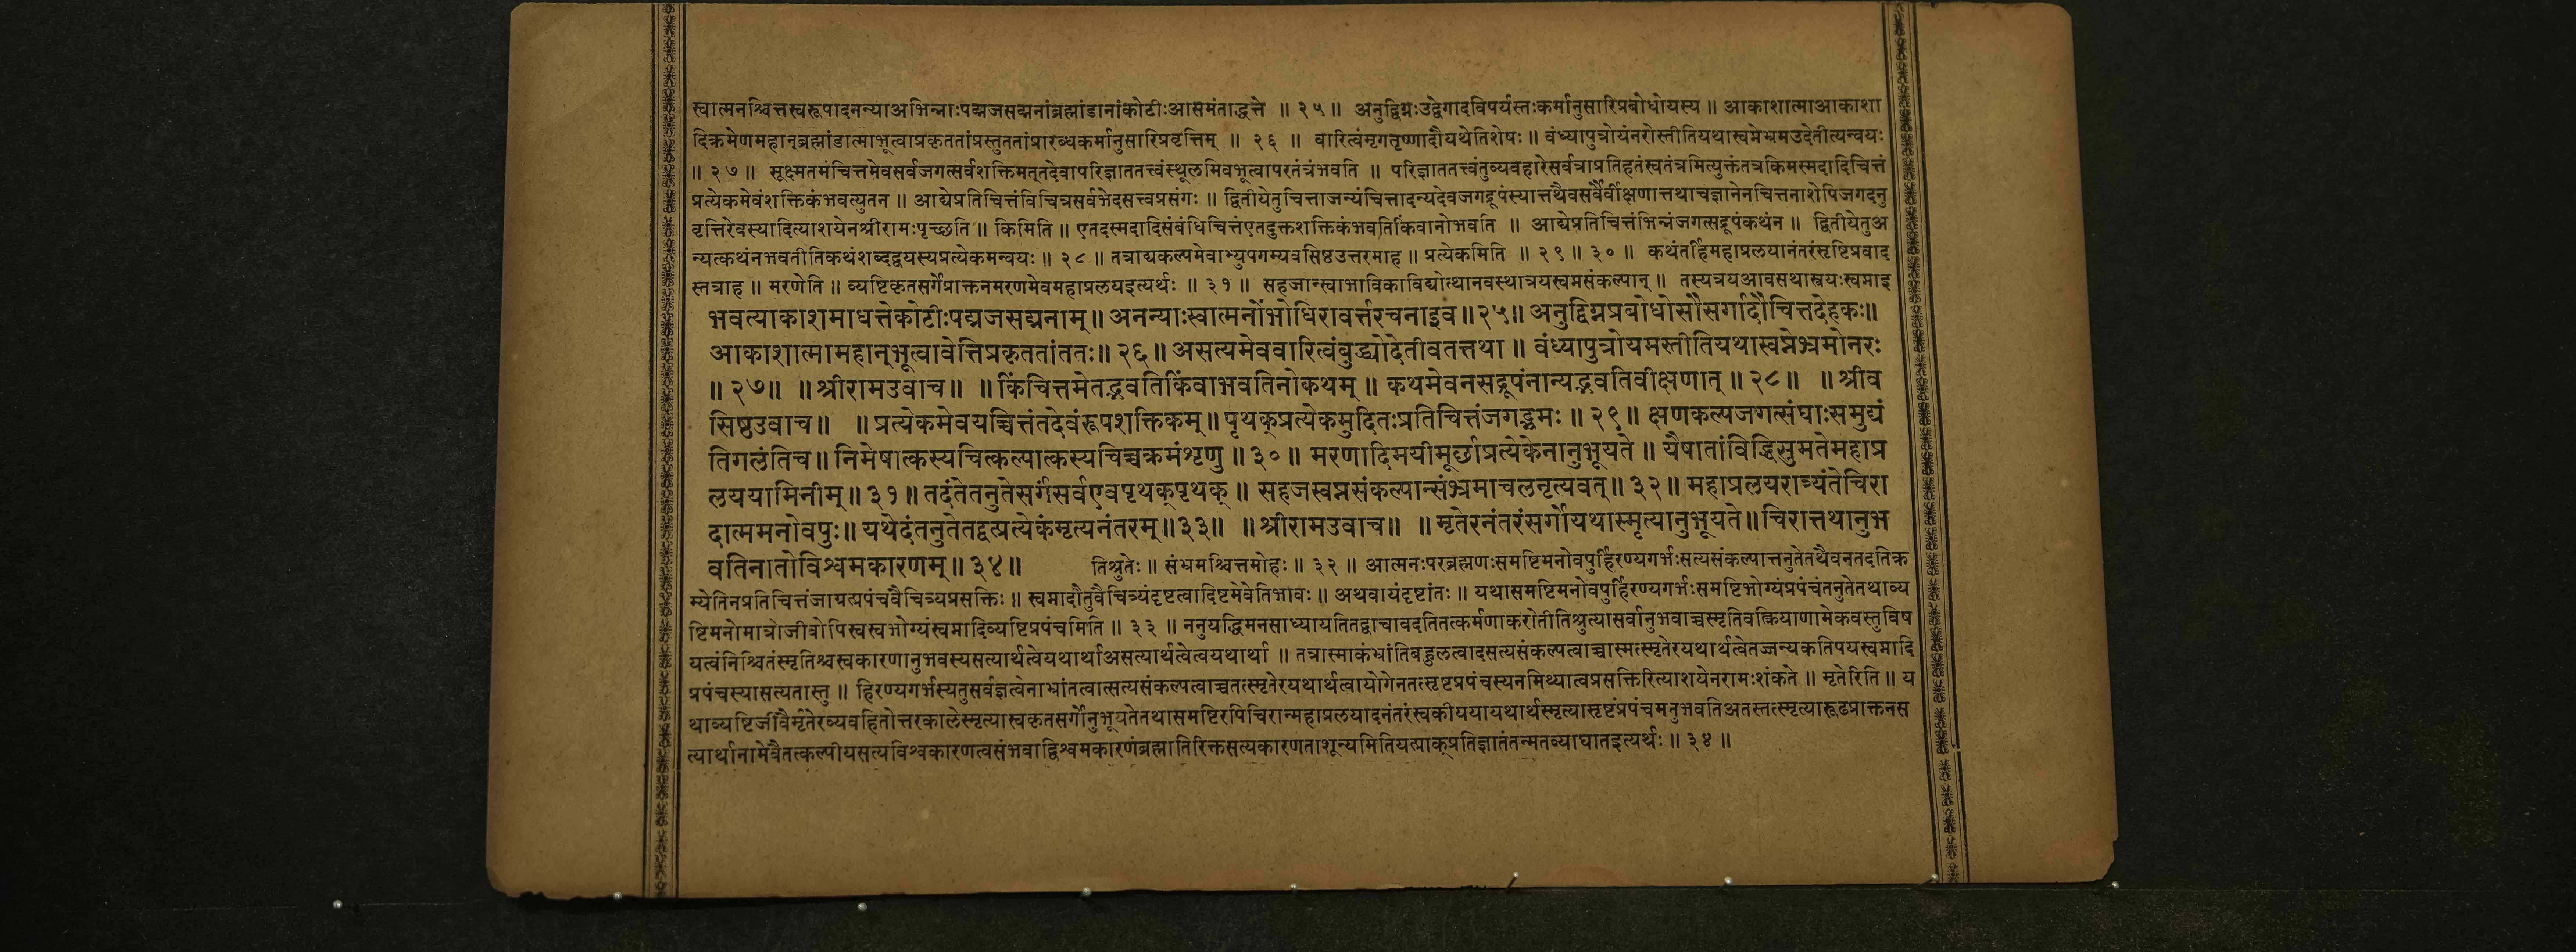 स्वात्मनश्चित्तस्वरूपादनन्याअभिन्नाःपद्मजसद्मनांब्रह्मांडानांकोटीःआसमंताद्धत्ते ॥ २५ ॥ अनुद्विग्नःउद्वेगादविपर्यस्तःकर्मानुसारिप्रबोधोयस्य ॥ आकाशात्माआकाशा
दिक्रमेणमहान्ब्रह्मांडात्माभूत्वाप्रकृततांप्रस्तुततांप्रारब्धकर्मानुसारिप्रवृत्तिम् ॥ २६ ॥ वारित्वंमृगतृष्णादौयथेतिशेषः ॥ वंध्यापुत्रोयंनरोस्तीतियथास्वप्नेभ्रमउदेतीत्यन्वयः
॥ २७ ॥ सूक्ष्मतमंचित्तमेवसर्वजगत्सर्वशक्तिमत्तदेवापरिज्ञाततत्त्वंस्थूलमिवभूत्वापरतंत्रंभवति ॥ परिज्ञाततत्त्वंतुव्यवहारेसर्वत्राप्रतिहतंस्वतंत्रमित्युक्तंतत्रकिमस्मदादिचित्तं
प्रत्येकमेवंशक्तिकंभवत्युतन ॥ आद्येप्रतिचित्तंविचित्रसर्वभेदसत्त्वप्रसंगः ॥ द्वितीयेतुचित्ताजन्यंचित्तादन्यदेवजगद्रूपंस्यात्तथैवसर्वैर्वीक्षणात्तथाचज्ञानेनचित्तनाशेपिजगदनु
वृत्तिरेवस्यादित्याशयेनश्रीरामःपृच्छति ॥ किमिति ॥ एतदस्मदादिसंबंधिचित्तंएतदुक्तशक्तिकंभवतिकिंवानोभवति ॥ आद्येप्रतिचित्तंभिन्नंजगत्सद्रूपंकथंन ॥ द्वितीयेतुअ
न्यत्कथंनभवतीतिकथंशब्दद्वयस्यप्रत्येकमन्वयः ॥ २८ ॥ तत्राद्यकल्पमेवाभ्युपगम्यवसिष्ठउत्तरमाह ॥ प्रत्येकमिति ॥ २९ ॥ ३० ॥ कथंतर्हिमहाप्रलयानंतरंसृष्टिप्रवाद
स्तत्राह ॥ मरणेति ॥ व्यष्टिकृतसर्गेप्राक्तनमरणमेवमहाप्रलयइत्यर्थः ॥ ३१ ॥ सहजान्स्वाभाविकाविद्योत्थानवस्थात्रयस्वप्नसंकल्पान् ॥ तस्यत्रयआवसथास्त्रयःस्वप्नाइ
भवत्याकाशमाधत्तेकोटीःपद्मजसद्मनाम् ॥ अनन्याःस्वात्मनोंभोधिरावर्त्तरचनाइव ॥ २५ ॥ अनुद्विग्नप्रबोधोसौसर्गादौचित्तदेहकः ॥
आकाशात्मामहान्भूत्वावेत्तिप्रकृततांततः ॥ २६ ॥ असत्यमेववारित्वंबुद्ध्योदेतीवतत्तथा ॥ वंध्यापुत्रोयमस्तीतियथास्वप्नेभ्रमोनरः
॥ २७ ॥ ॥ श्रीरामउवाच ॥ ॥ किंचित्तमेतद्भवतिकिंवाभवतिनोकथम् ॥ कथमेवनसद्रूपंनान्यद्भवतिवीक्षणात् ॥ २८ ॥ ॥ श्रीव
सिष्ठउवाच ॥ ॥ प्रत्येकमेवयच्चित्तंतदेवंरूपशक्तिकम् ॥ पृथक्प्रत्येकमुदितःप्रतिचित्तंजगद्भ्रमः ॥ २९ ॥ क्षणकल्पजगत्संघाःसमुद्यं
तिगलंतिच ॥ निमेषात्कस्यचित्कल्पात्कस्यचिच्चक्रमंशृणु ॥ ३० ॥ मरणादिमयीमूर्छाप्रत्येकेनानुभूयते ॥ यैषातांविद्धिसुमतेमहाप्र
लययामिनीम् ॥ ३१ ॥ तदंतेतनुतेसर्गंसर्वएवपृथक्पृथक् ॥ सहजस्वप्नसंकल्पान्संभ्रमाचलनृत्यवत् ॥ ३२ ॥ महाप्रलयरात्र्यंतेचिरा
दात्ममनोवपुः ॥ यथेदंतनुतेतद्वत्प्रत्येकंमृत्यनंतरम् ॥ ३३ ॥ ॥ श्रीरामउवाच ॥ ॥ मृतेरनंतरंसर्गोयथास्मृत्यानुभूयते ॥ चिरात्तथानुभ
वतिनातोविश्वमकारणम् ॥ ३४ ॥ तिश्रुतेः ॥ संभ्रमश्चित्तमोहः ॥ ३२ ॥ आत्मनःपरब्रह्मणःसमष्टिमनोवपुर्हिरण्यगर्भःसत्यसंकल्पात्तनुतेतथैवनतदतिक्र
म्येतिनप्रतिचित्तंजाग्रत्प्रपंचवैचित्र्यप्रसक्तिः ॥ स्वप्नादौतुवैचित्र्यंदृष्टत्वादिष्टमेवेतिभावः ॥ अथवायंदृष्टांतः ॥ यथासमष्टिमनोवपुर्हिरण्यगर्भःसमष्टिभोग्यंप्रपंचंतनुतेतथाव्य
ष्टिमनोमात्रोजीवोपिस्वस्वभोग्यंस्वप्नादिव्यष्टिप्रपंचमिति ॥ ३३ ॥ ननुयद्धिमनसाध्यायतितद्वाचावदतितत्कर्मणाकरोतीतिश्रुत्यासर्वानुभवाच्चस्मृतिवत्क्रियाणामेकवस्तुविष
यत्वंनिश्चितंस्मृतिश्चस्वकारणानुभवस्यसत्यार्थत्वेयथार्थाअसत्यार्थत्वेत्वयथार्था ॥ तत्रास्माकंभ्रांतिबहुलत्वादसत्यसंकल्पत्वाच्चास्मत्स्मृतेरयथार्थत्वेतज्जन्यकतिपयस्वप्नादि
प्रपंचस्यासत्यतास्तु ॥ हिरण्यगर्भस्यतुसर्वज्ञत्वेनाभ्रांतत्वात्सत्यसंकल्पत्वाच्चतत्स्मृतेरयथार्थत्वायोगेनतत्सृष्टप्रपंचस्यनमिथ्यात्वप्रसक्तिरित्याशयेनरामःशंकते ॥ मृतेरिति ॥ य
थाव्यष्टिर्जीवैर्मृतेरव्यवहितोत्तरकालेस्मृत्यास्वकृतसर्गोनुभूयतेतथासमष्टिरपिचिरान्महाप्रलयादनंतरंस्वकीययायथार्थस्मृत्यासृष्टंप्रपंचमनुभवतिअतस्तत्स्मृत्यारूढप्राक्तनस
त्यार्थानामेवैतत्कल्पीयसत्यविश्वकारणत्वसंभवाद्विश्वमकारणंब्रह्मातिरिक्तसत्यकारणताशून्यमितियत्प्राक्प्रतिज्ञातंतन्मतव्याघातइत्यर्थः ॥ ३४ ॥